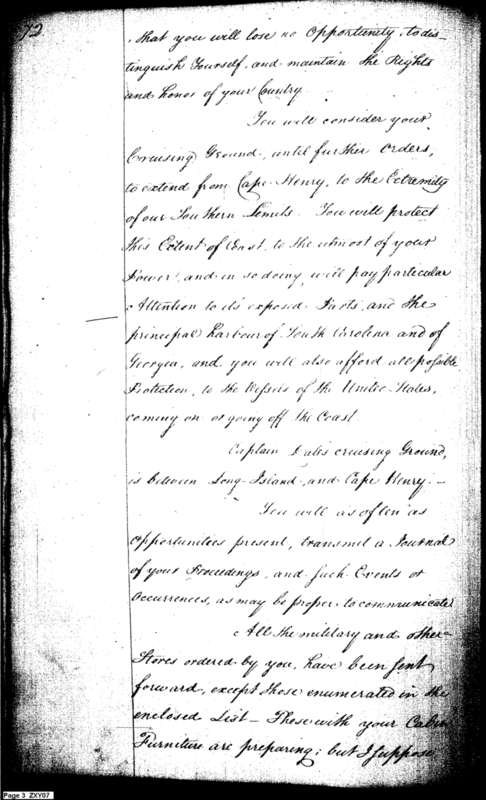 72
that you will lose no Opportunity, to dis-
tinguish Yourself, and maintain the Rights
and honor of your Country.
You will consider your
Cruising Ground, until further orders,
to extend from Cape Henry, to the Extremity
of our Southern Limits. You will protect
this Extent of Coast, to the utmost of your
Power, and in so doing, will pay particular
Attention to its exposed Parts, and the
principal Harbour of South Carolina and of
Georgia, and you will also afford all possible
Protection, to the Vessels of the United States,
coming on or going off the Coast.
Captain Dale's cruising Ground,
is between Long-Island, and Cape Henry.—
You will as often as
opportunities present, transmit a Journal
of your Proceedings, and such Events or
Occurrences, as may be proper to communicate
All the military and other
Stores ordered by you, have been sent
forward, except those enumerated in the
enclosed List— These with your Cabin
Furniture are preparing; but I suppose
Page 3 ZXY07